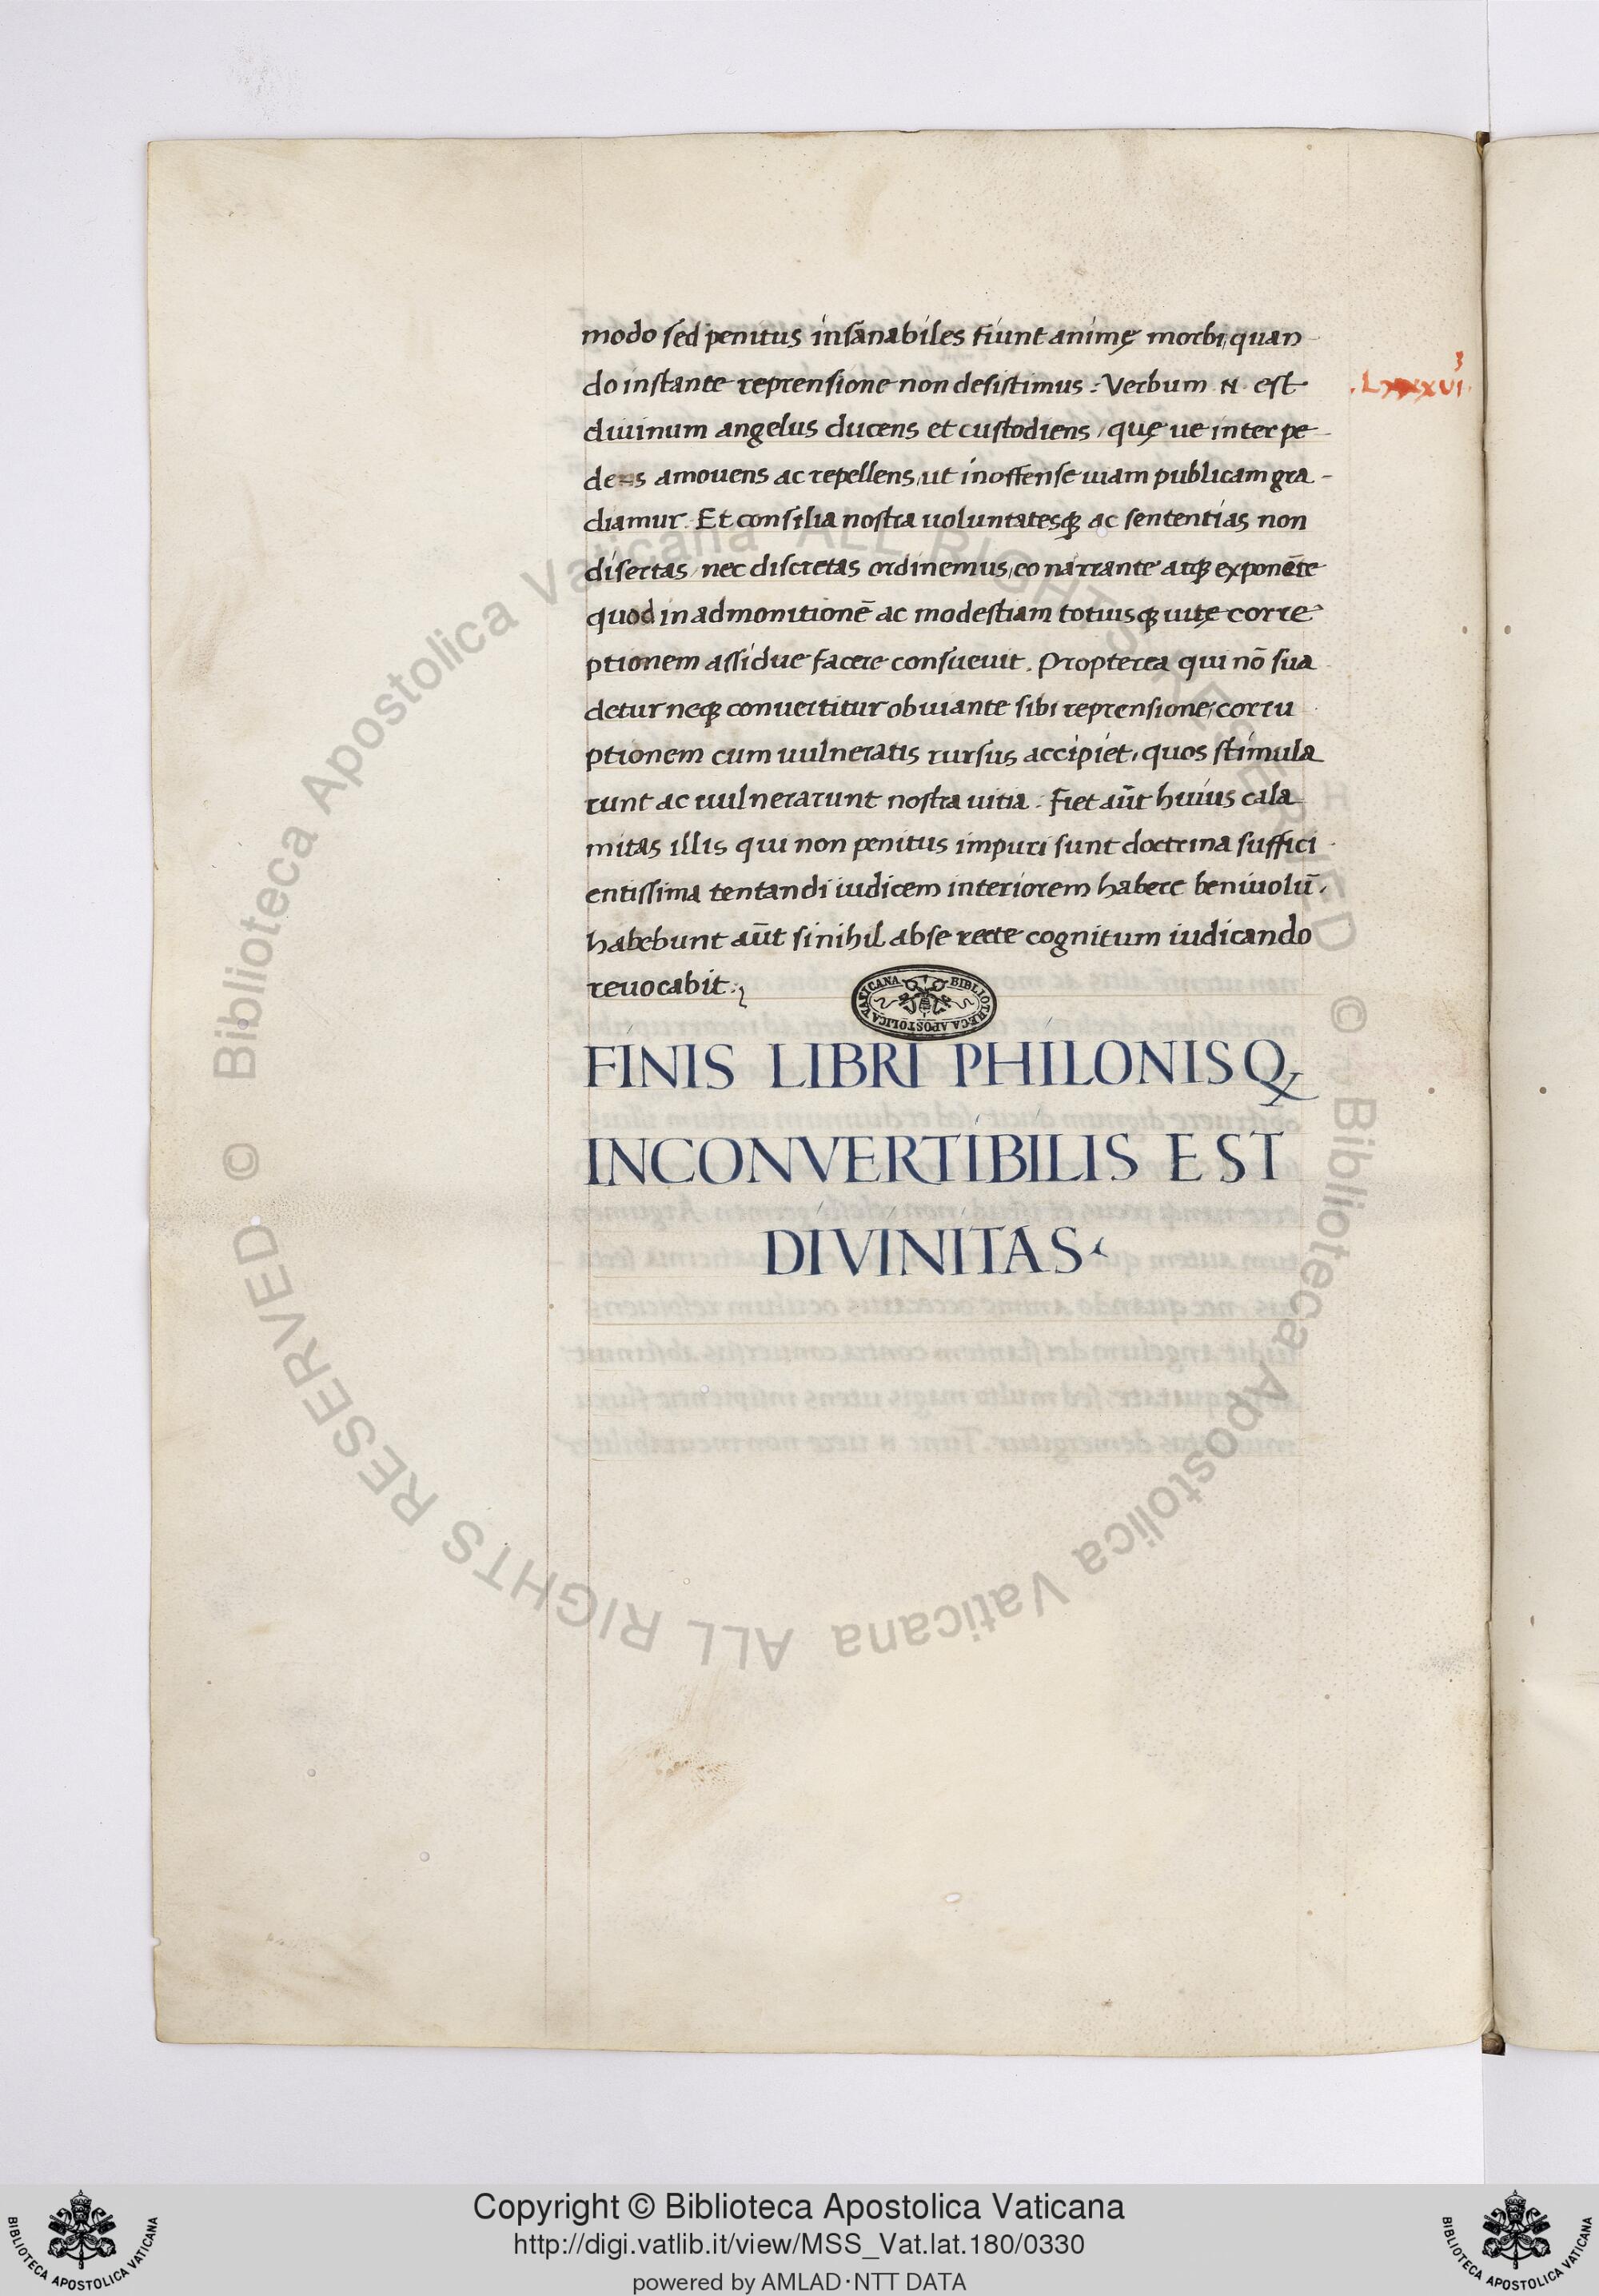 modo sed penitus insanabiles fiunt animę morbi, quan
do instante reprensione non desistimus : Verbum .N. est
.LxxxVI.
3
diuinum angelus ducens et custodiens, quę ue inter pe
dens amouens ac repellens, ut inoffense uiam publicam gra-
diamur. Et consilia nostra uoluntatesqꝫ ac sententias non
disertas, nec discretas ordinemus, eo narrante atqꝫ exponēte
quod in admonitionē ac modestiam totiusqꝫ uitę corre
ptionem assidue facere consueuit. Propterea qui nō sua
detur neqꝫ conuertitur obuiante sibi reprensione, corru
ptionem cum uulneratis rursus accipiet, quos stimula
runt ac uulnerarunt nostra uitia. Fiet aūt huius cala
mitas illis qui non penitus impuri sunt doctrina suffici
entissima tentandi iudicem interiorem habere beniuolū.
habebunt aūt si nihil ab se recte cognitum iudicando
reuocabit.
FINIS LIBRI PHILONIS Q
INCONVERTIBILIS EST
DIVINITAS
BIBLIOTHECA APOSTOLICA VATICANA
© Biblioteca Apostolica Vaticana ALL RIGHTS RESERVED
© Biblioteca Apostolica Vaticana ALL RIGHTS RESERVED
Copyright © Biblioteca Apostolica Vaticana
http://digi.vatlib.it/view/MSS_Vat.lat.180/0330
powered by AMLAD·NTT DATA
BIBLIOTECA APOSTOLICA VATICANA
BIBLIOTECA APOSTOLICA VATICANA